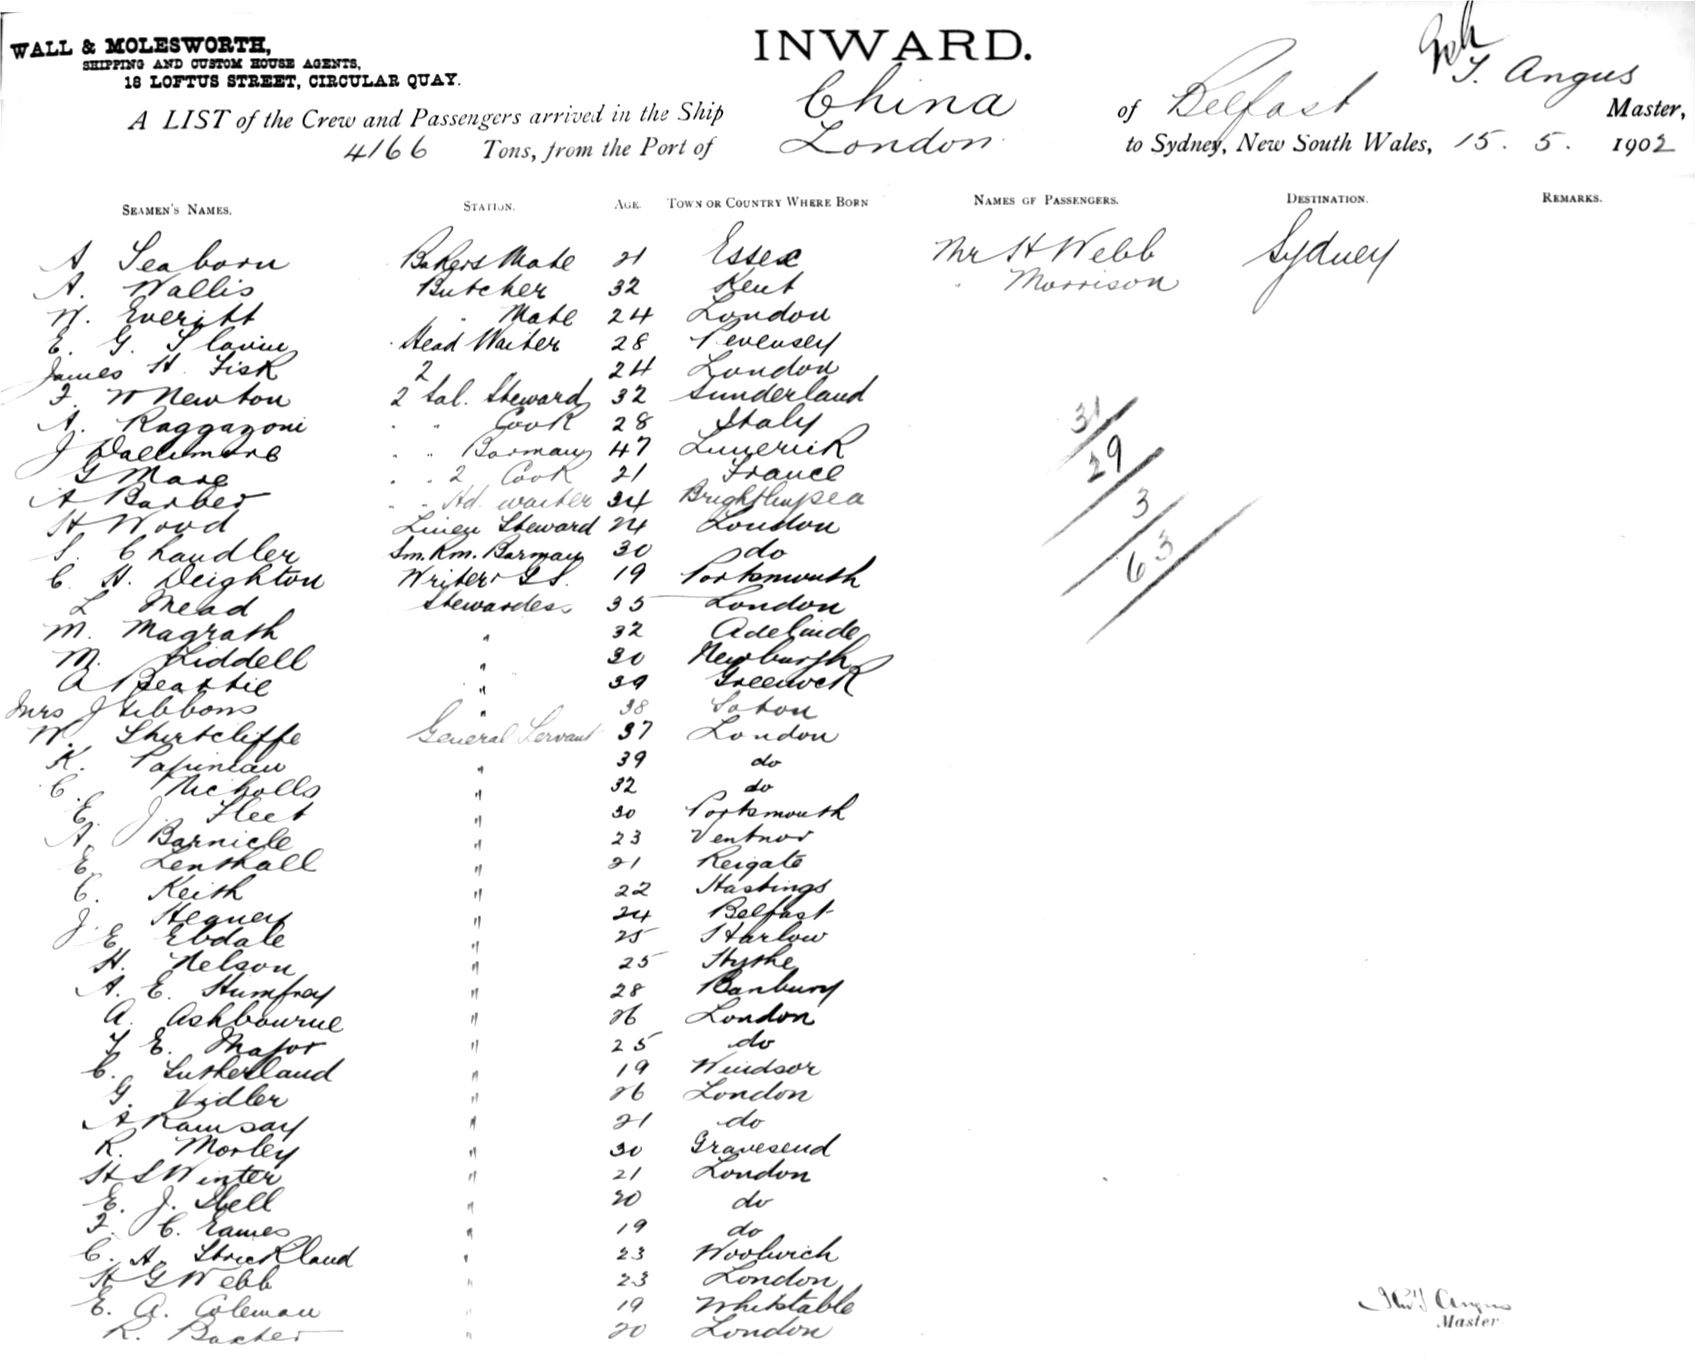 WALL & MOLESWORTH,
SHIPPING AND CUSTOM HOUSE AGENTS,
18 LOFTUS STREET, CIRCULAR QUAY.
INWARD.
A LIST of the Crew and Passengers arrived in the Ship China of Belfast T. Angus Master,
4166 Tons, from the Port of London to Sydney, New South Wales, 15. 5. 1902
SEAMEN'S NAMES. STATION. AGE. TOWN OR COUNTRY WHERE BORN NAMES OF PASSENGERS. DESTINATION. REMARKS.
A Seaborn Bakers Mate 21 Essex Mr H Webb Sydney
A. Wallis Butcher 32 Kent " Morrison
W. Everitt " Mate 24 London
E. G. Slavin Head Waiter 28 Pevensey
James H. Fisk 2 24 London
F. W Newton 2 Sal. Steward 32 Sunderland
A. Raggazoni " " Cook 28 Italy
J Dallimore " " Barman 47 Limerick
G Mare " " 2 Cook 21 France
A Barber " " Hd. waiter 34 Brightlingsea
H Wood Linen Steward 24 London
S. Chandler Sm. Rm. Barman 30 do
C. H. Deighton Writer G S. 19 Portsmouth
L Mead Stewardess 35 London
M. Magrath " 32 Adelaide
M. Liddell " 30 Newburgh
A Beattie " 39 Greenock
Mrs J Gibbons " 38 Soton
W. Shirtcliffe General Servant 37 London
K. Papineau " 39 do
C. Nicholls " 32 do
E. J. Fleet " 30 Portsmouth
A. Barnicle " 23 Ventnor
E. Lenthall " 21 Reigate
C. Keith " 22 Hastings
J. Heaney " 24 Belfast
E. Ebdale " 25 Harlow
H. Nelson " 25 Hythe
A. E. Humfrey " 28 Banbury
A. Ashbourne " 26 London
T. E. Major " 25 do
C. Sutherland " 19 Windsor
G. Vidler " 26 London
A Ramsay " 21 do
R. Morley " 30 Gravesend
H S Winter " 21 London
E. J. Stell " 20 do
F. C. Eames " 19 do
C. A. Strickland " 23 Woolwich
H G Webb " 23 London
E. A. Coleman " 19 Whitstable
R. Baxter " 20 London
31
29
3
63
Angus
Master